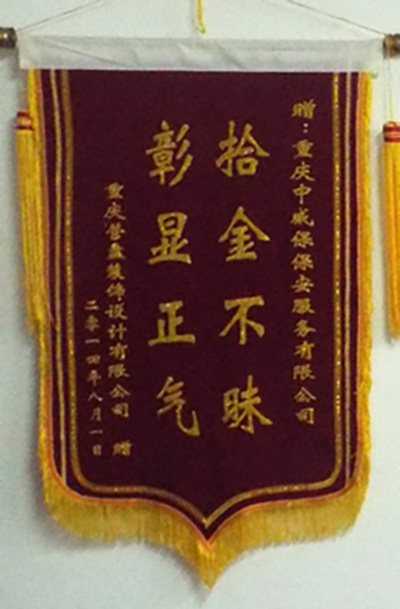 赠：重庆中威保保安服务有限公司
拾金不昧
彰显正气
重庆誉鑫装饰设计有限公司 赠
二零一四年八月一日